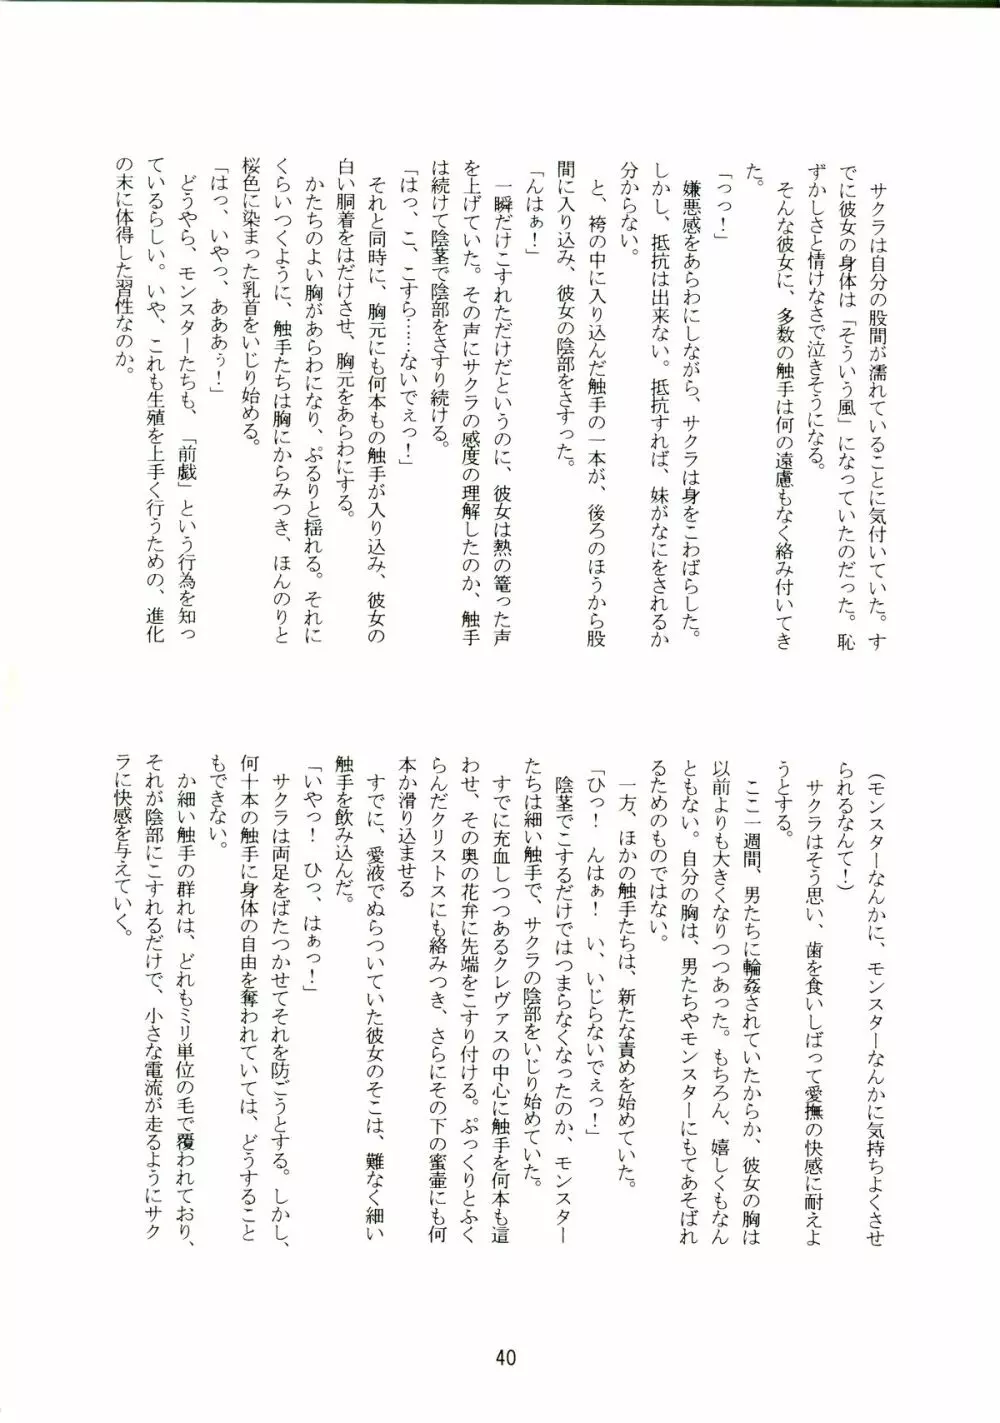 サクラは自分の股間が濡れていることに気付いていた。す
でに彼女の身体は「そういう風」になっていたのだった。恥
ずかしさと情けなさで泣きそうになる。
そんな彼女に、多数の触手は何の遠慮もなく絡み付いてき
た。
「っっ！」
嫌悪感をあらわにしながら、サクラは身をこわばらした。
しかし、抵抗は出来ない。抵抗すれば、妹がなにをされるか
分からない。
と、袴の中に入り込んだ触手の一本が、後ろのほうから股
間に入り込み、彼女の陰部をさすった。
「んはぁ！」
一瞬だけこすれただけだというのに、彼女は熱の篭った声
を上げていた。その声にサクラの感度の理解したのか、触手
は続けて陰茎で陰部をさすり続ける。
「はっ、こ、こすら……ないでぇっ！」
それと同時に、胸元にも何本もの触手が入り込み、彼女の
白い胴着をはだけさせ、胸元をあらわにする。
かたちのよい胸があらわになり、ぷるりと揺れる。それに
くらいつくように、触手たちは胸にからみつき、ほんのりと
桜色に染まった乳首をいじり始める。
「はっ、いやっ、あああぅ！」
どうやら、モンスターたちも、「前戯」という行為を知っ
ているらしい。いや、これも生殖を上手く行うための、進化
の末に体得した習性なのか。
（モンスターなんかに、モンスターなんかに気持ちよくさせ
られるなんて！）
サクラはそう思い、歯を食いしばって愛撫の快感に耐えよ
うとする。
ここ一週間、男たちに輪姦されていたからか、彼女の胸は
以前よりも大きくなりつつあった。もちろん、嬉しくもなん
ともない。自分の胸は、男たちやモンスターにもてあそばれ
るためのものではない。
一方、ほかの触手たちは、新たな責めを始めていた。
「ひっ！　んはぁ！　い、いじらないでぇっ！」
陰茎でこするだけではつまらなくなったのか、モンスター
たちは細い触手で、サクラの陰部をいじり始めていた。
すでに充血しつつあるクレヴァスの中心に触手を何本も這
わせ、その奥の花弁に先端をこすり付ける。ぷっくりとふく
らんだクリストスにも絡みつき、さらにその下の蜜壷にも何
本か滑り込ませる
すでに、愛液でぬらついていた彼女のそこは、難なく細い
触手を飲み込んだ。
「いやっ！　ひっ、はぁっ！」
サクラは両足をばたつかせてそれを防ごうとする。しかし、
何十本の触手に身体の自由を奪われていては、どうすること
もできない。
か細い触手の群れは、どれもミリ単位の毛で覆われており、
それが陰部にこすれるだけで、小さな電流が走るようにサク
ラに快感を与えていく。
40